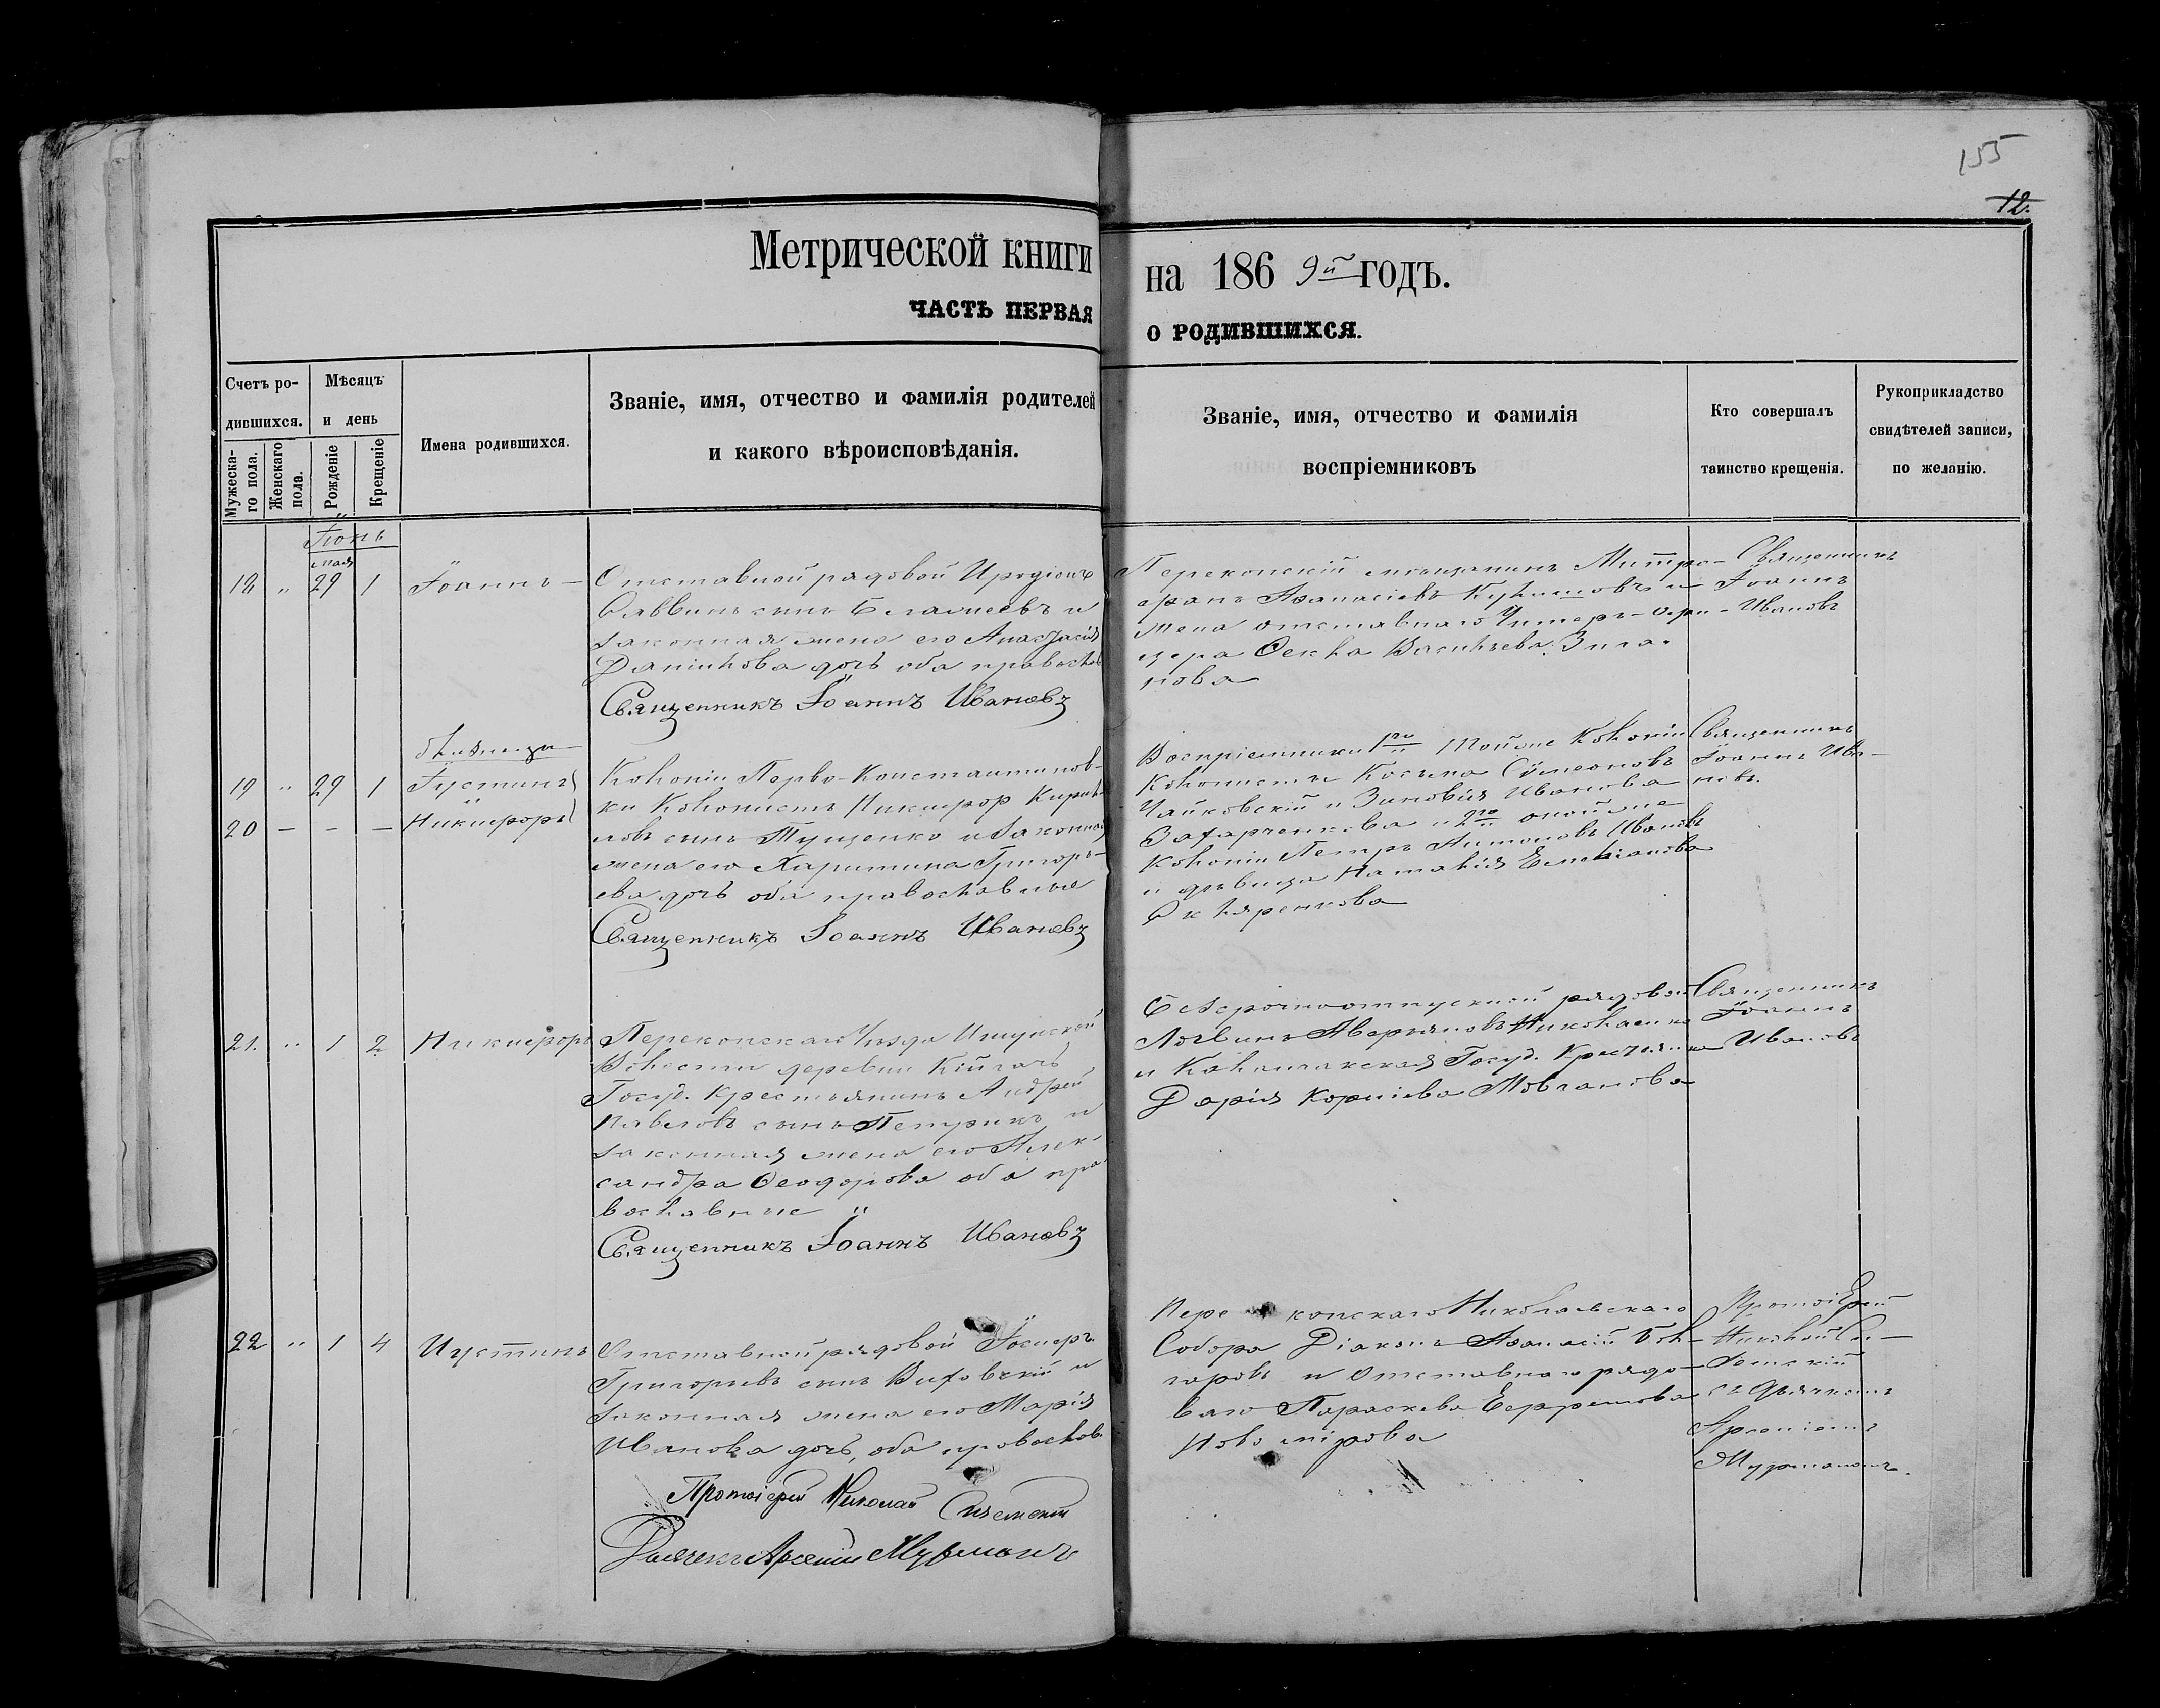 155
12.
Метрической книги на 1869й годъ.
ЧАСТЬ ПЕРВАЯ О РОДИВШИХСЯ.
Счетъ ро-
дившихся.
Мужеска-
го пола.
Женскаго
пола.
Мѣсяцъ
и день
Рожденіе
Крещеніе
Имена родившихся.
Званіе, имя, отчество и фамилія родителей
и какого вѣроисповѣданія.
Званіе, имя, отчество и фамилія
воспріемниковъ
Кто совершалъ
таинство крещенія.
Рукоприкладство
свидѣтелей записи,
по желанію.
Іюнь
мая
18 " 29 1 Іоаннъ
Отставной рядовой Иродіонъ
Саввинъ сынъ и
законная жена его Анастасія
Даніилова дочь оба православ
Священникъ Іоаннъ Ивановъ
Перекопскій мѣщанинъ Митро-
фанъ Аѳанасіевъ и
жена отставнаго Унтеръ-Офи-
цера Ѳекла Васильева
нова
Священникъ
Іоаннъ
Ивановъ
близнецы
19 " 29 1 Іустинъ
20 — — — Никифоръ
Колоніи Перво-Константинов-
ки Колонистъ Никифор Кирил-
ловъ сынъ Тущенко и законная
жена его Харитина Григорь-
ева дочь оба православные
Священникъ Іоаннъ Ивановъ
Воспріемники 1го Тойже Колоніи
Колонистъ Косьма Сѵмеоновъ
Чайковскій и Зиновія Иванова
Захарченкова и 2го оной же
Колоніи Петръ Антоновъ Ивановъ
и дѣвица Наталія Емельянова
Скляренкова
Священникъ
Іоаннъ Ива-
новъ.
21. " 1 2 Никифоръ
Перекопскаго Уѣзда Ишунской
Волости деревни
Госуд. Крестьянинъ Андрей
Павловъ сынъ Петрикъ и
законная жена его Алек-
сандра Ѳеодорова оба пра-
вославные
Священникъ Іоаннъ Ивановъ
Безсрочноотпускной рядовой
Логвинъ Аверьяновъ Николаенко
и Госуд. Крестьянка
Дарія Корніева Мовчанова
Священникъ
Іоаннъ
Ивановъ
22 " 1 4 Иустинъ
Отставной рядовой Іосифъ
Григорьевъ сынъ и
законная жена его Марія
Иванова дочь, оба православ.
Протоіерей Николай
Дьячекъ Арсеній Мурманъ
Перекопскаго Николаевскаго
Собора Діаконъ Аѳанасій Бол-
гаровъ и Отставнаго рядо-
ваго Параскева Ефремова
Новомірова
Протоіерей
Николай
съ Дьячкомъ
Арсеніемъ
Мурманомъ.